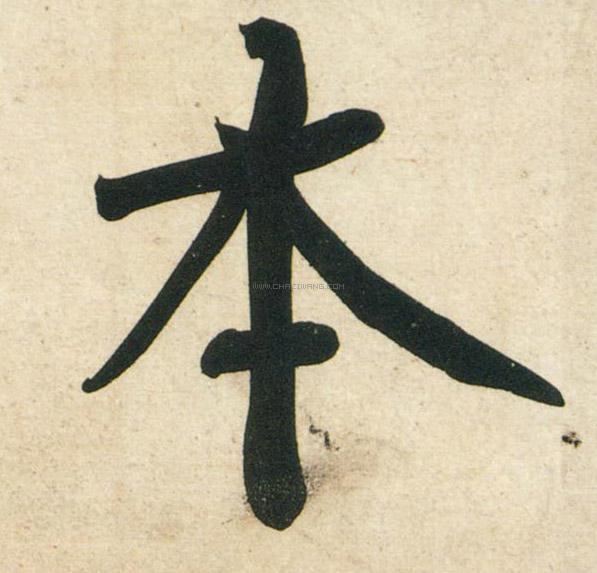 本
WWW.CHAZIWANG.COM